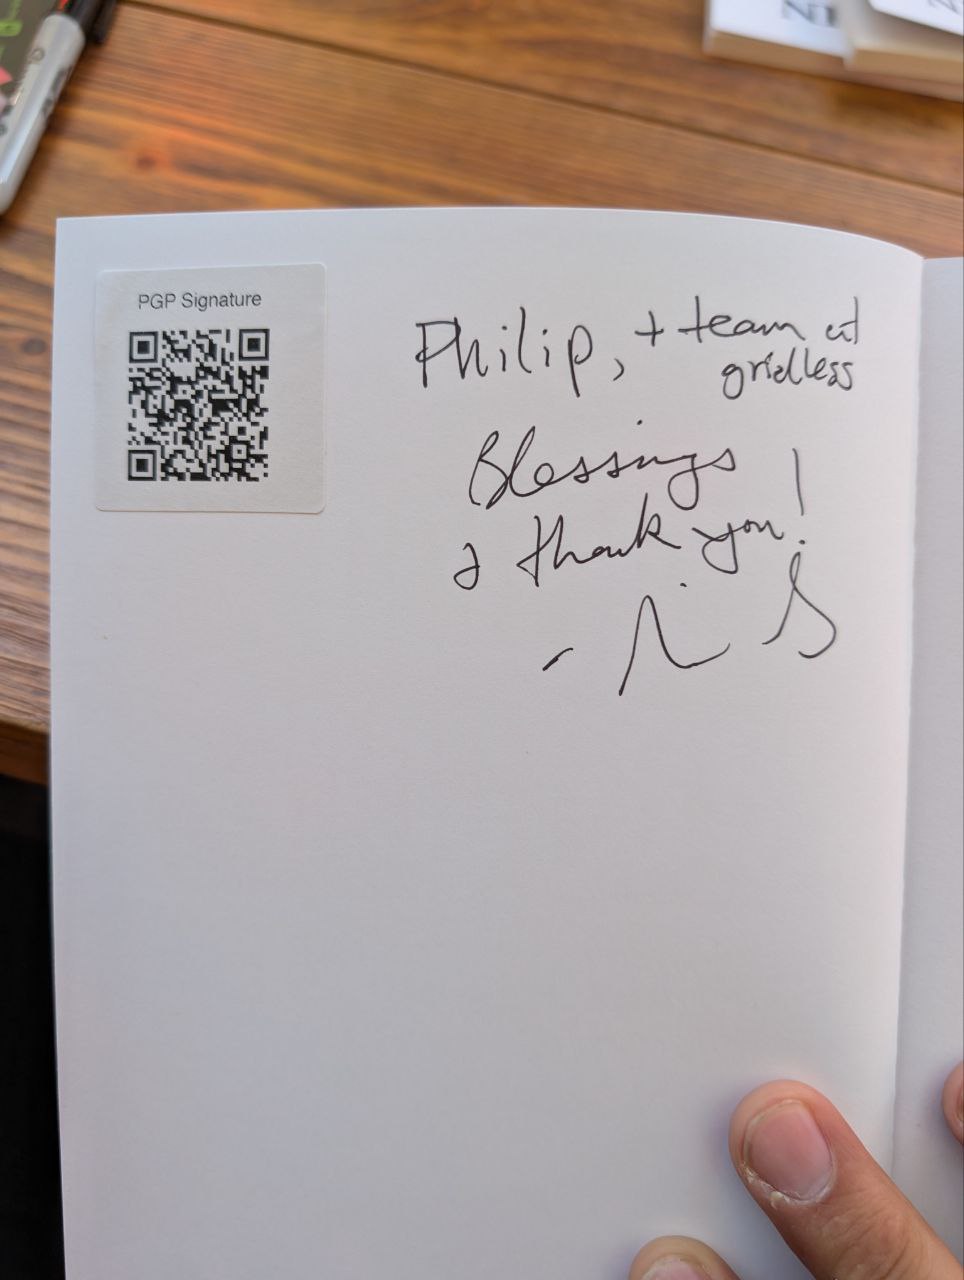 PGP Signature
Philip, + team at
gridless
Blessings
& thank you!